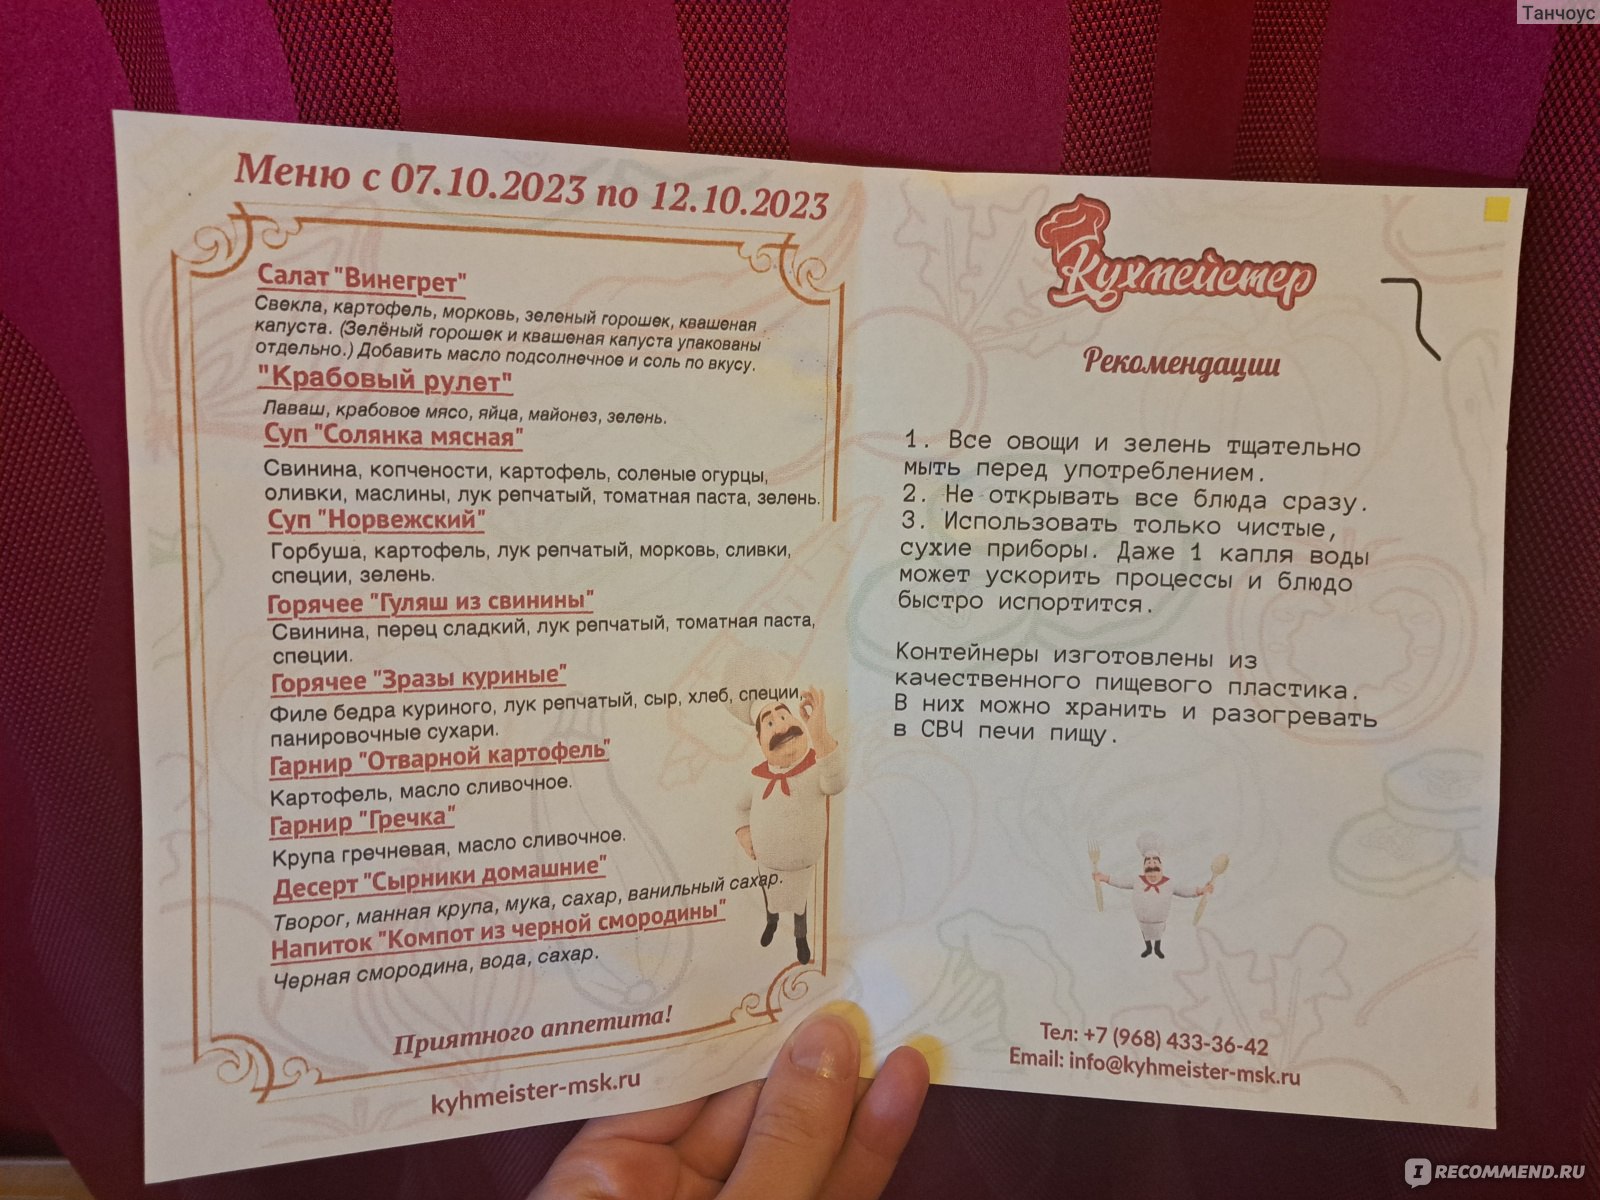 Танчоус
Меню с 07.10.2023 по 12.10.2023
Салат "Винегрет"
Свекла, картофель, морковь, зеленый горошек, квашеная
капуста. (Зелёный горошек и квашеная капуста упакованы
отдельно.) Добавить масло подсолнечное и соль по вкусу.
"Крабовый рулет"
Лаваш, крабовое мясо, яйца, майонез, зелень.
Суп "Солянка мясная"
Свинина, копчености, картофель, соленые огурцы,
оливки, маслины, лук репчатый, томатная паста, зелень.
Суп "Норвежский"
Горбуша, картофель, лук репчатый, морковь, сливки,
специи, зелень.
Горячее "Гуляш из свинины"
Свинина, перец сладкий, лук репчатый, томатная паста,
специи.
Горячее "Зразы куриные"
Филе бедра куриного, лук репчатый, сыр, хлеб, специи,
панировочные сухари.
Гарнир "Отварной картофель"
Картофель, масло сливочное.
Гарнир "Гречка"
Крупа гречневая, масло сливочное.
Десерт "Сырники домашние"
Творог, манная крупа, мука, сахар, ванильный сахар.
Напиток "Компот из черной смородины"
Черная смородина, вода, сахар.
Приятного аппетита!
kyhmeister-msk.ru
Кухмейстер
Рекомендации
1. Все овощи и зелень тщательно
мыть перед употреблением.
2. Не открывать все блюда сразу.
3. Использовать только чистые,
сухие приборы. Даже 1 капля воды
может ускорить процессы и блюдо
быстро испортится.
Контейнеры изготовлены из
качественного пищевого пластика.
В них можно хранить и разогревать
в СВЧ печи пищу.
Тел: +7 (968) 433-36-42
Email: info@kyhmeister-msk.ru
IRECOMMEND.RU